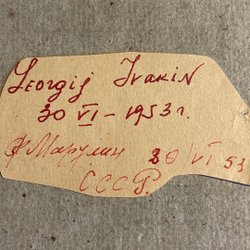 Georgij Ivakin
30 VI - 1953 г.
Ф Марулин 30 VI 53
СССР